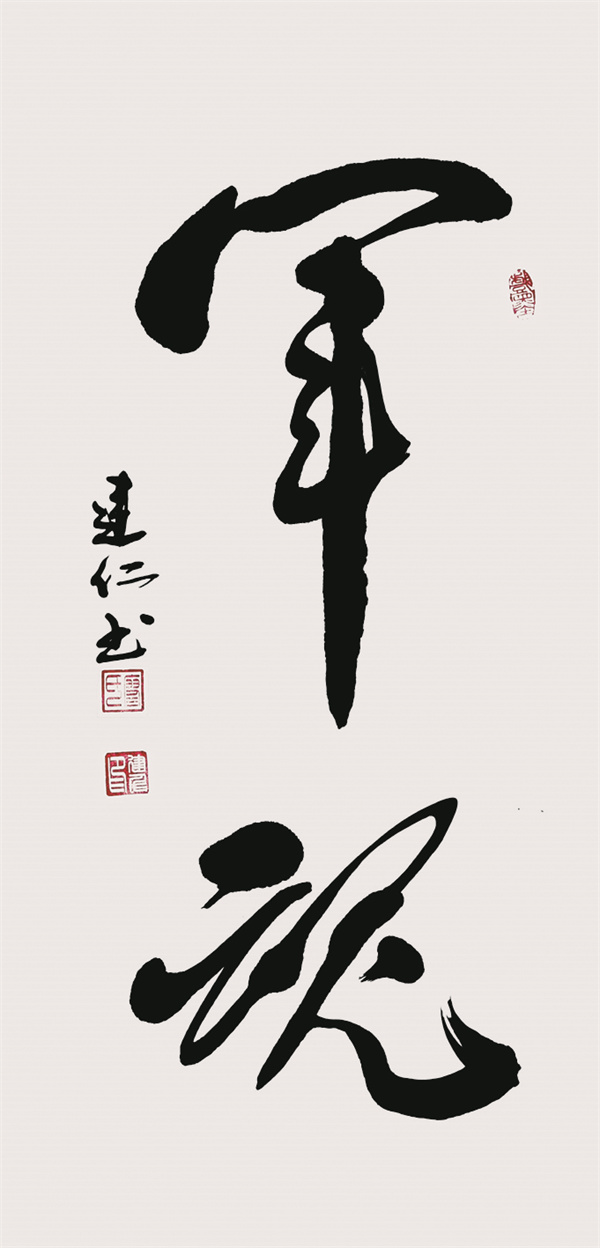 军魂
建仁书